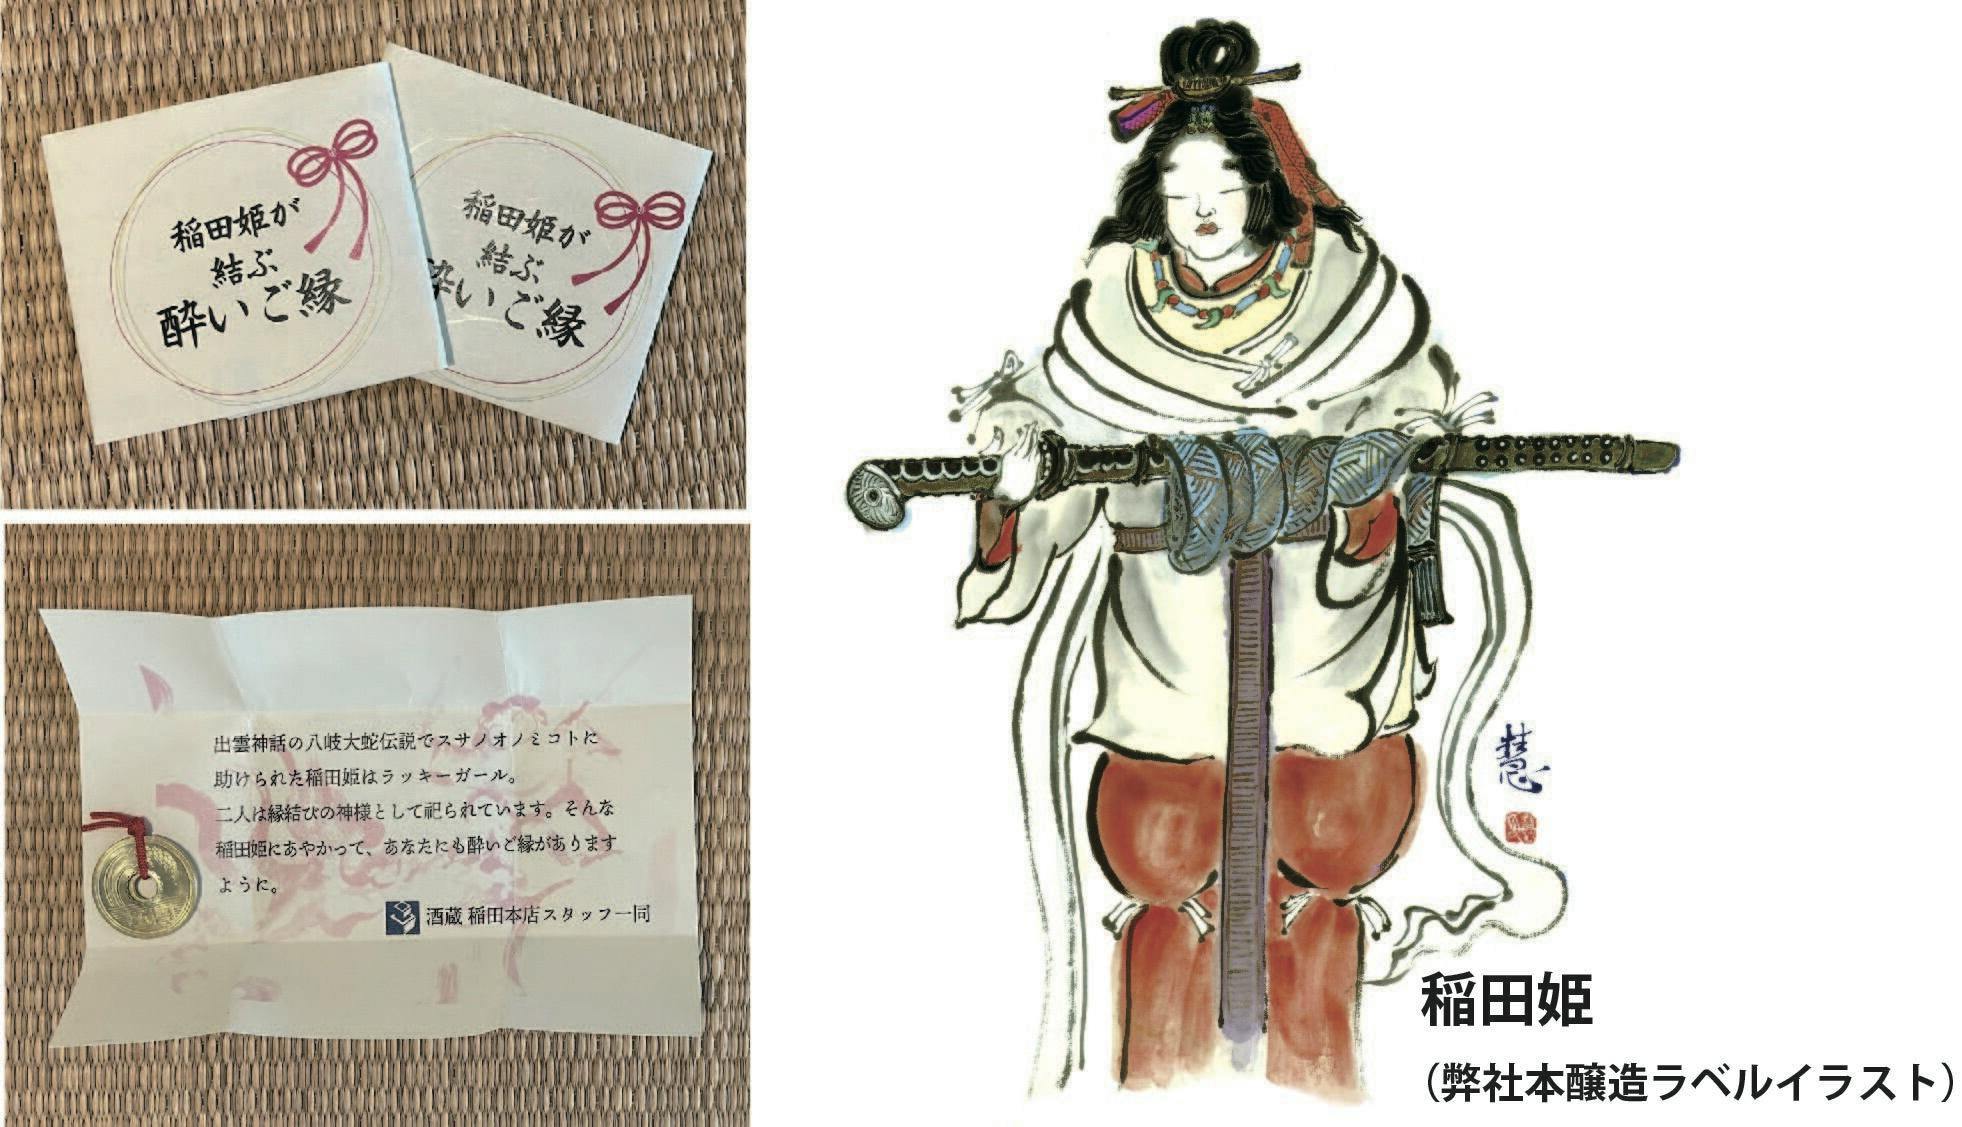 稲田姫が
結ぶ
酔いご縁
稲田姫が
結ぶ
酔いご縁
出雲神話の八岐大蛇伝説でスサノオノミコトに
助けられた稲田姫はラッキーガール。
二人は縁結びの神様として祀られています。そんな
稲田姫にあやかって、あなたにも酔いご縁があります
ように。
酒蔵 稲田本店スタッフ一同
慧
稲田姫
（弊社本醸造ラベルイラスト）